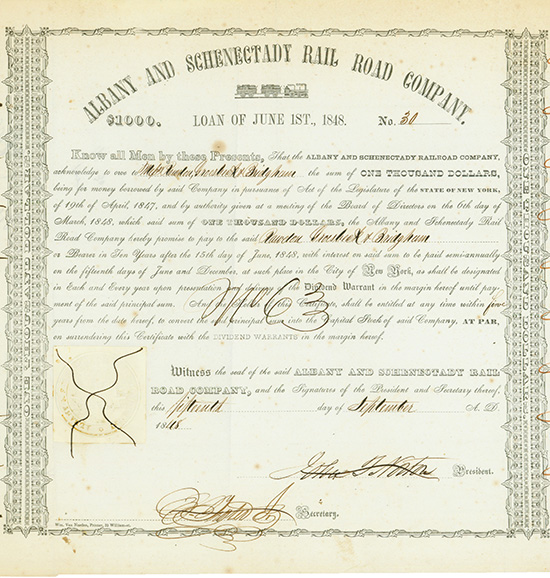 ALBANY AND SCHENECTADY RAIL ROAD COMPANY.
$1000. LOAN OF JUNE 1ST., 1848. No. 30
Know all Men by these Presents, That the ALBANY AND SCHENECTADY RAILROAD COMPANY,
acknowledge to owe & Bridgham the sum of ONE THOUSAND DOLLARS,
being for money borrowed by said Company in pursuance of Act of the Legislature of the STATE OF NEW YORK,
of 19th of April, 1847, and by authority given at a meeting of the Board of Directors on the 6th day of
March, 1848, which said sum of ONE THOUSAND DOLLARS, the Albany and Schenectady Rail
Road Company hereby promise to pay to the said & Bridgham
or Bearer in Ten Years after the 15th day of June, 1848, with interest on said sum to be paid semi-annually
on the fifteenth days of June and December, at such place in the City of New York, as shall be designated
in Each and Every year upon presentation and delivery of the Dividend Warrant in the margin hereof until pay-
ment of the said principal sum. Any of this shall be entitled at any time within five
years from the date hereof, to convert the said principal sum into the Capital Stock of said Company, AT PAR,
on surrendering this Certificate with the DIVIDEND WARRANTS in the margin hereof.
Witness the seal of the said ALBANY AND SCHENECTADY RAIL
ROAD COMPANY, and the Signatures of the President and Secretary thereof,
this fifteenth day of September A. D.
1848
John T Norton President.
Secretary.
Wm. Van Norden, Printer, 39 William-st.